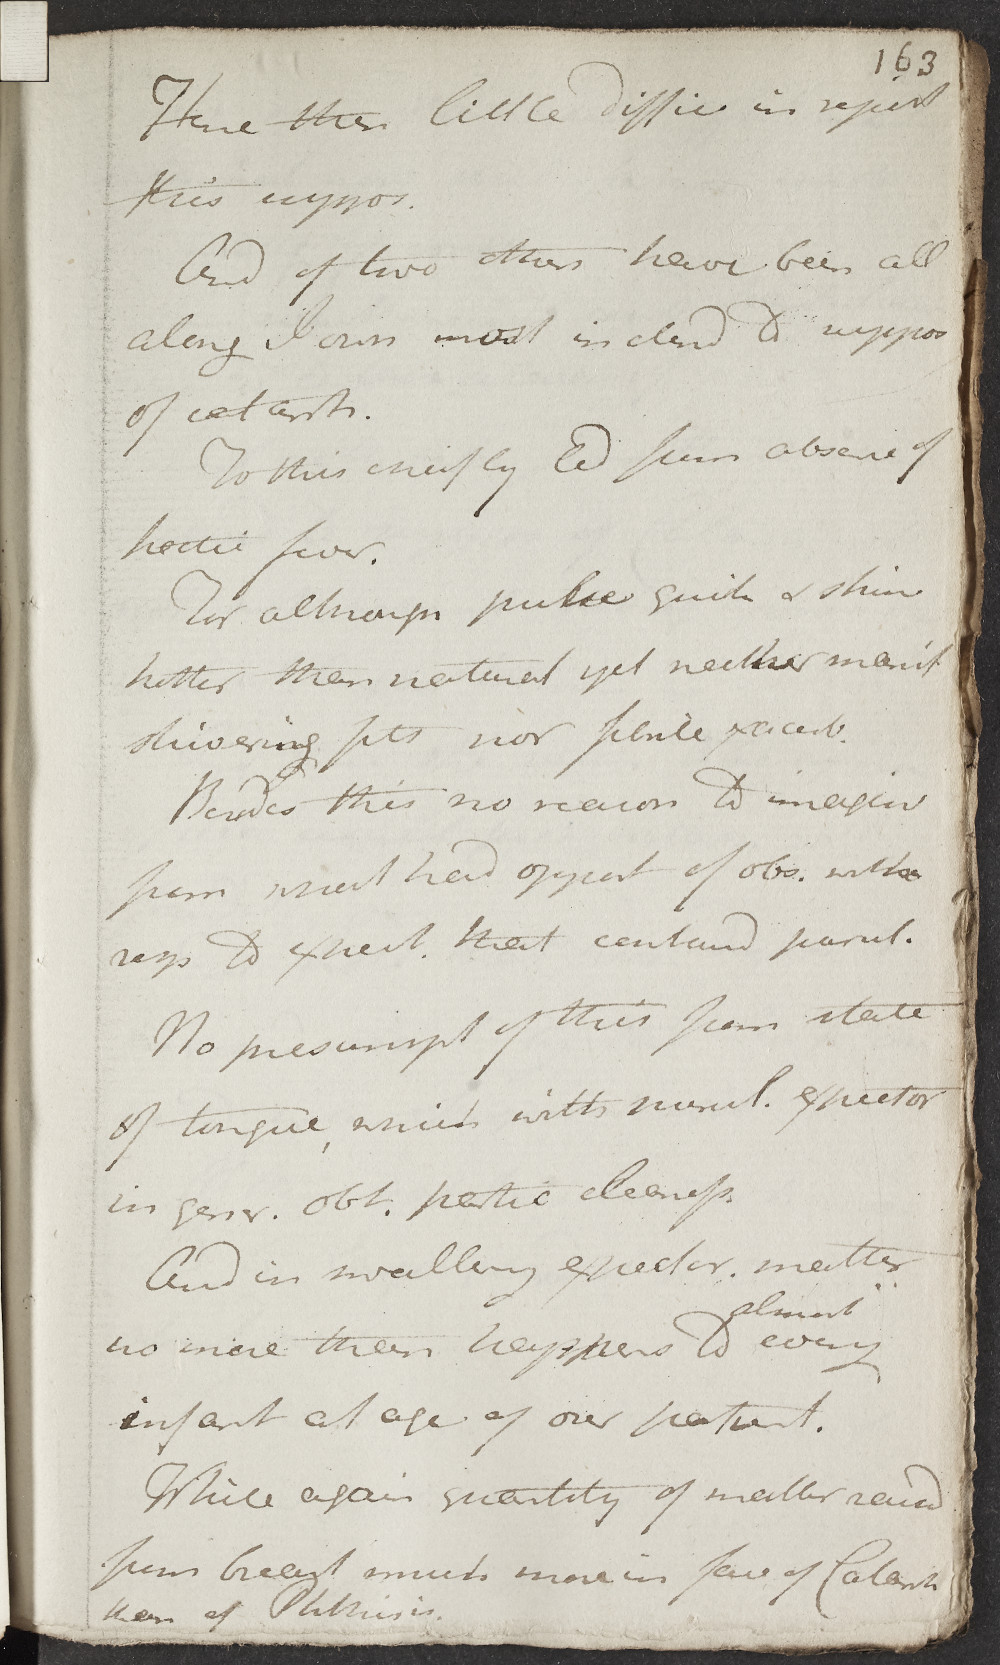 163
Here then little difficu in reject
this suppos.
And of two others have been all
along I own most inclend to suppos
of catarrh.
To this cheifly led from absence of
hectic fever.
For although pulse quick & skin
hotter than natural yet neither manif
shivering fits nor febrile exacerb.
Besides this no reason to imagin
from what had opport of obs. with
resp to expect. that contained purul.
No presumpt of this from state
of tongue, which with purul. expector
in gener. obt. partic cleaness.
And in swallowing expector. matter
almost
no more than happens to every
infant at age of our patient.
While again quantity of matter raised
from breast much more in fav of Catarrh
than of Phthisis.